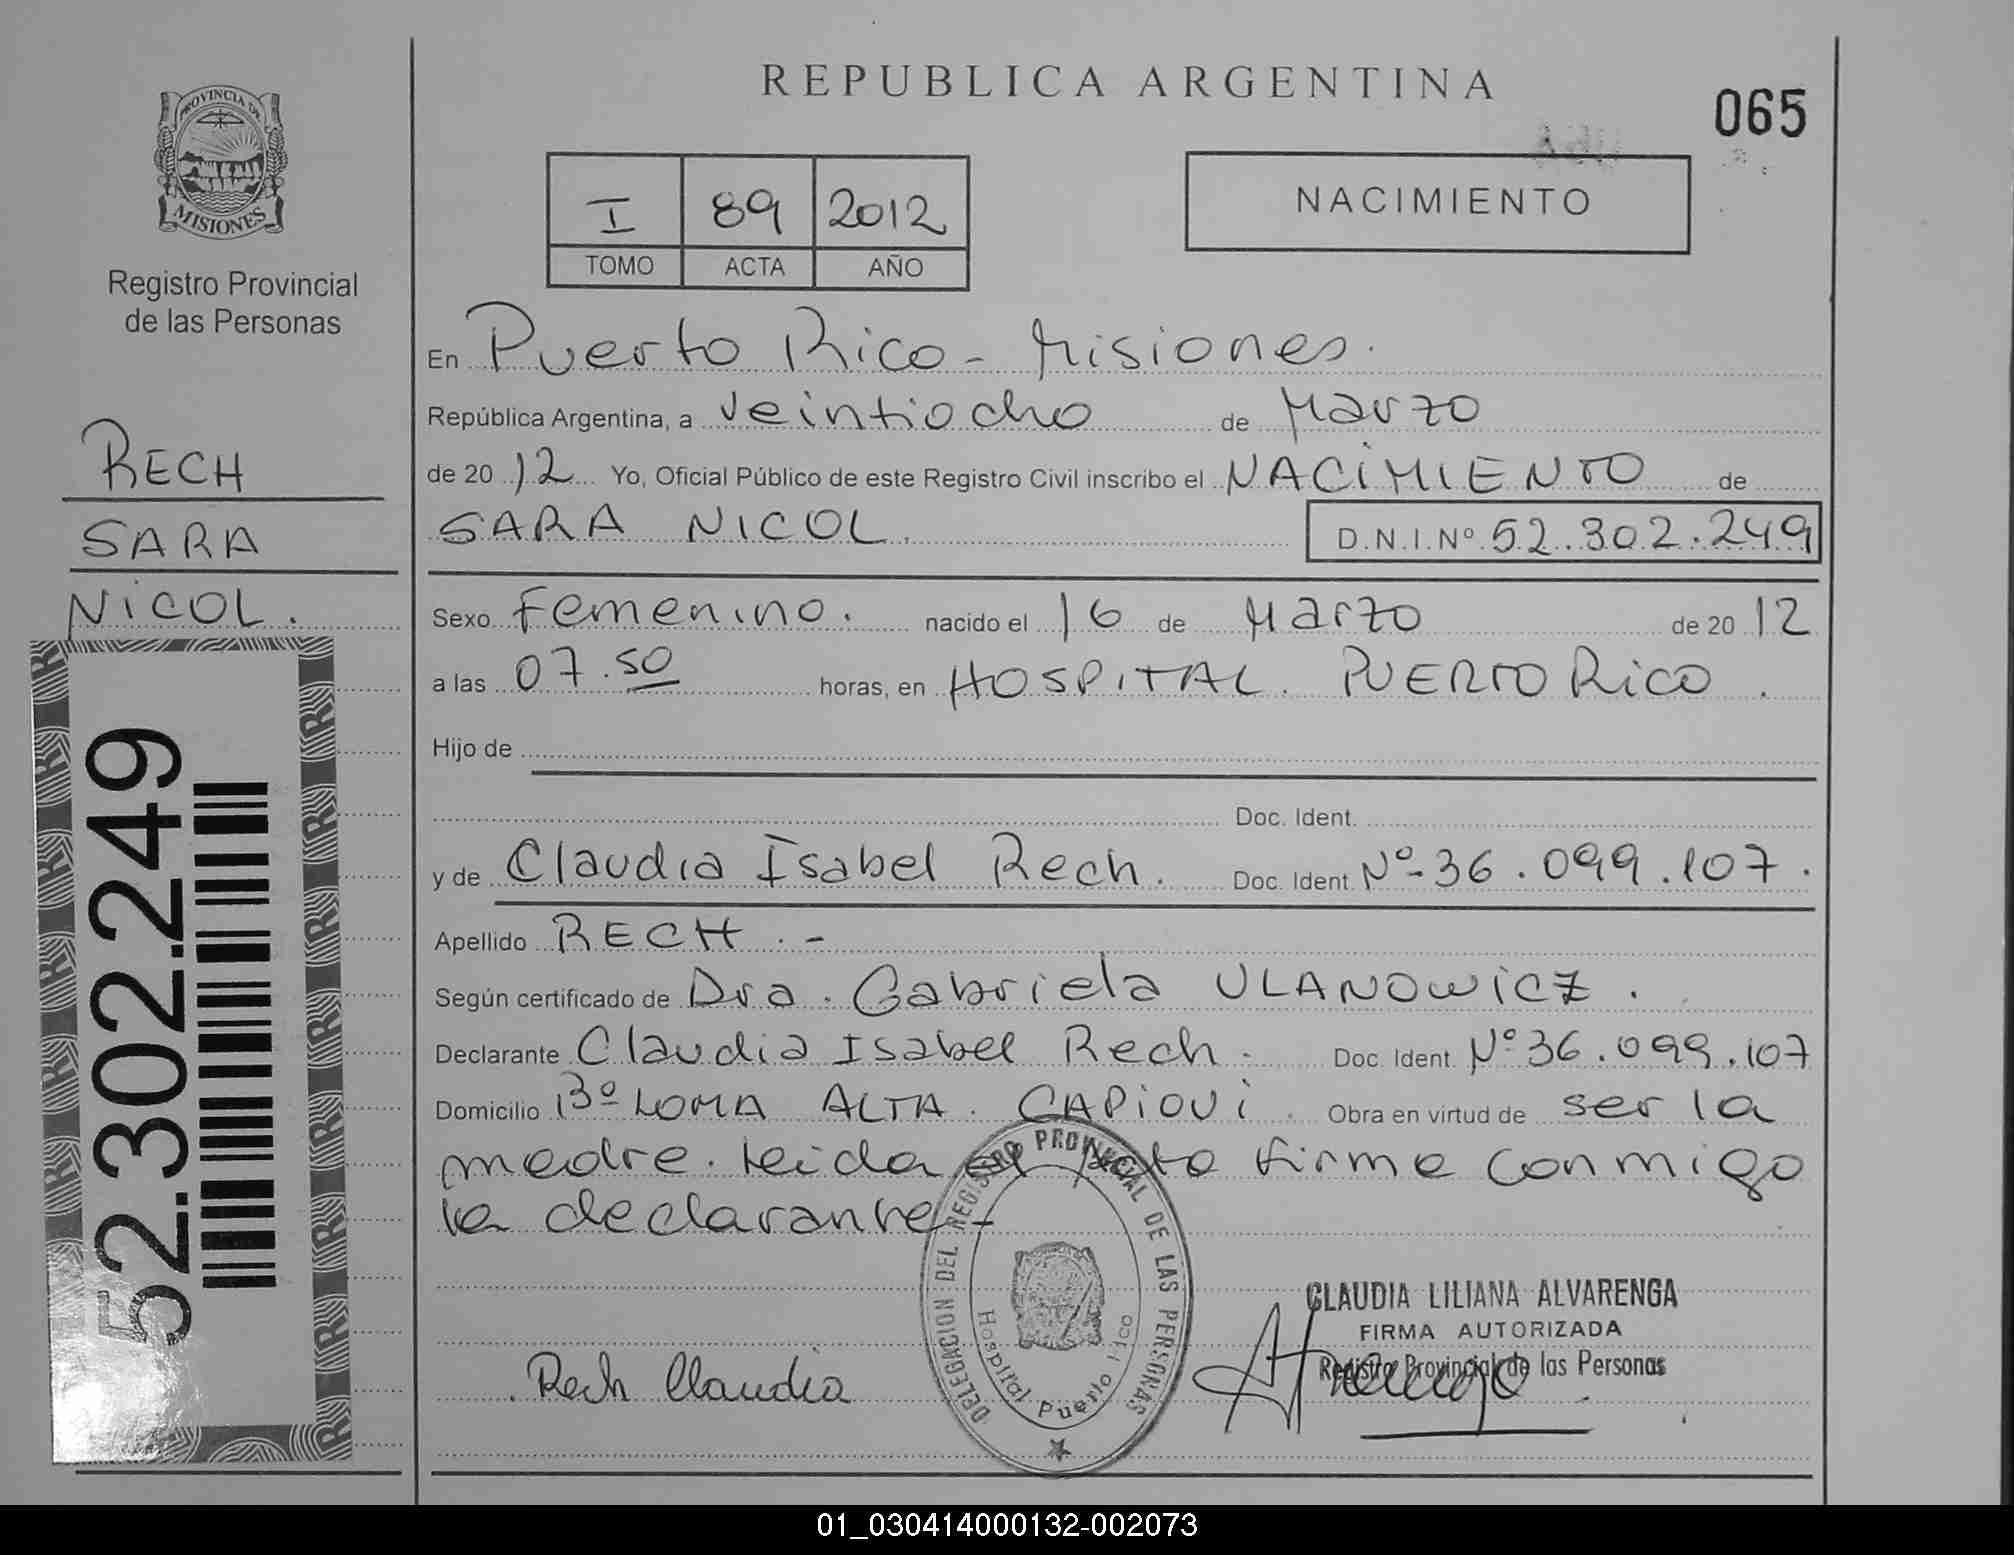 REPUBLICA ARGENTINA
065
PROVINCIA DE
MISIONES
Registro Provincial
de las Personas
I 89 2012
TOMO ACTA AÑO
NACIMIENTO
RECH
SARA
NICOL.
52.302.249
En Puerto Rico - Misiones.
República Argentina, a veintiocho de Marzo
de 20 12 Yo, Oficial Público de este Registro Civil inscribo el NACIMIENTO de
SARA NICOL. D.N.I.Nº 52.302.249
Sexo Femenino. nacido el 16 de Marzo de 20 12
a las 07.50 horas, en HOSPITAL. PUERTO RICO.
Hijo de
Doc. Ident.
y de Claudia Isabel Rech. Doc. Ident. Nº-36.099.107.
Apellido RECH.-
Según certificado de Dra. Gabriela ULANOWICZ.
Declarante Claudia Isabel Rech. Doc. Ident. Nº36.099.107
Domicilio Bº LOMA ALTA. CAPIOVI. Obra en virtud de ser la
madre. Leida el Acta firma conmigo
la declarante-
DELEGACION DEL REGISTRO PROVINCIAL DE LAS PERSONAS
Hospital Puerto Rico
CLAUDIA LILIANA ALVARENGA
FIRMA AUTORIZADA
Registro Provincial de las Personas
Rech Claudia
01_030414000132-002073